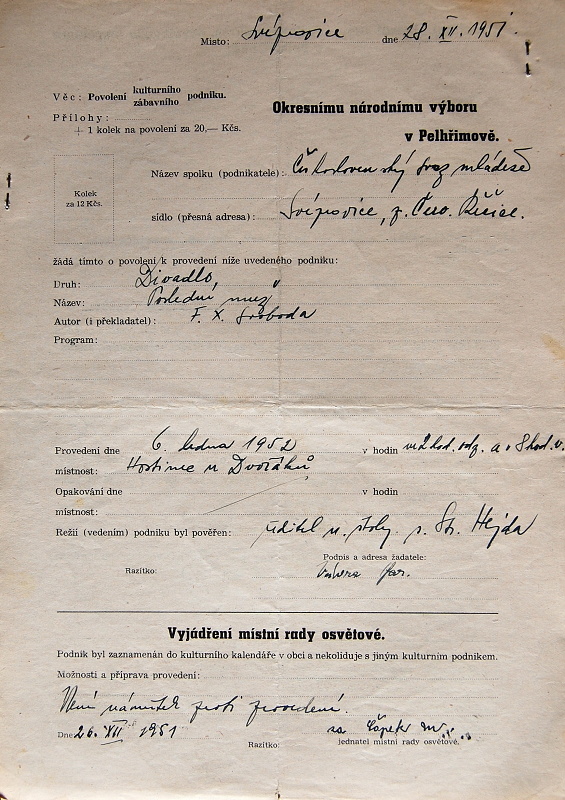 Místo: Svépravice dne 28. XII. 1951
Věc: Povolení kulturního
zábavního podniku.
Přílohy:
+ 1 kolek na povolení za 20,— Kčs.
Okresnímu národnímu výboru
v Pelhřimově.
Kolek
za 12 Kčs.
Název spolku (podnikatele): Československý svaz mládeže
sídlo (přesná adresa): Svépravice, p. Červ. Řečice.
žádá tímto o povolení k provedení níže uvedeného podniku:
Druh: Divadlo
Název: Poslední muž
Autor (i překladatel): F. X. Svoboda
Program:
Provedení dne 6. ledna 1952 v hodin ve 2 hod. odp. a v 8 hod. v.
místnost: Hostinec u Dvořáků
Opakování dne v hodin
místnost:
Režií (vedením) podniku byl pověřen: ředitel n. školy p. St. Hejda
Podpis a adresa žadatele:
Razítko:
Vyjádření místní rady osvětové.
Podnik byl zaznamenán do kulturního kalendáře v obci a nekoliduje s jiným kulturním podnikem.
Možnosti a příprava provedení:
Není námitek proti provedení.
Dne 26. XII 1951
Razítko: jednatel místní rady osvětové.